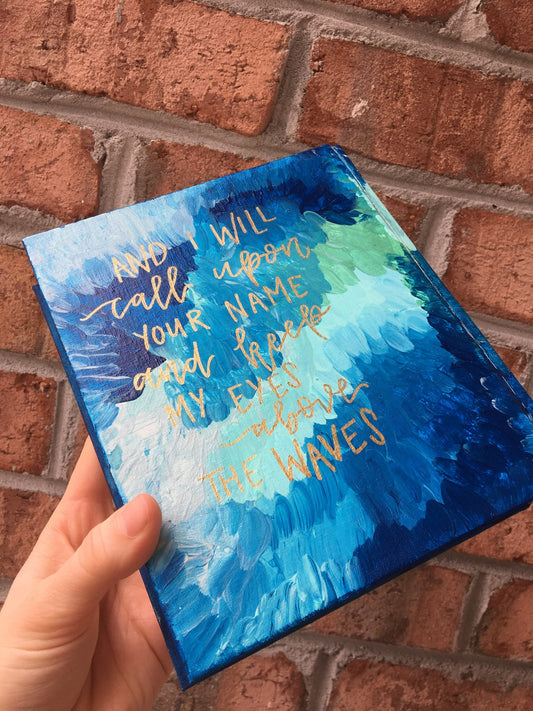 AND I WILL
call upon
YOUR NAME
and keep
MY EYES
above
THE WAVES